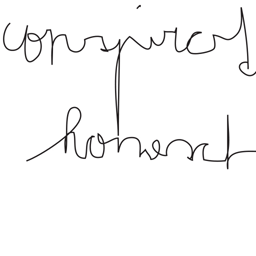 conspired
honest